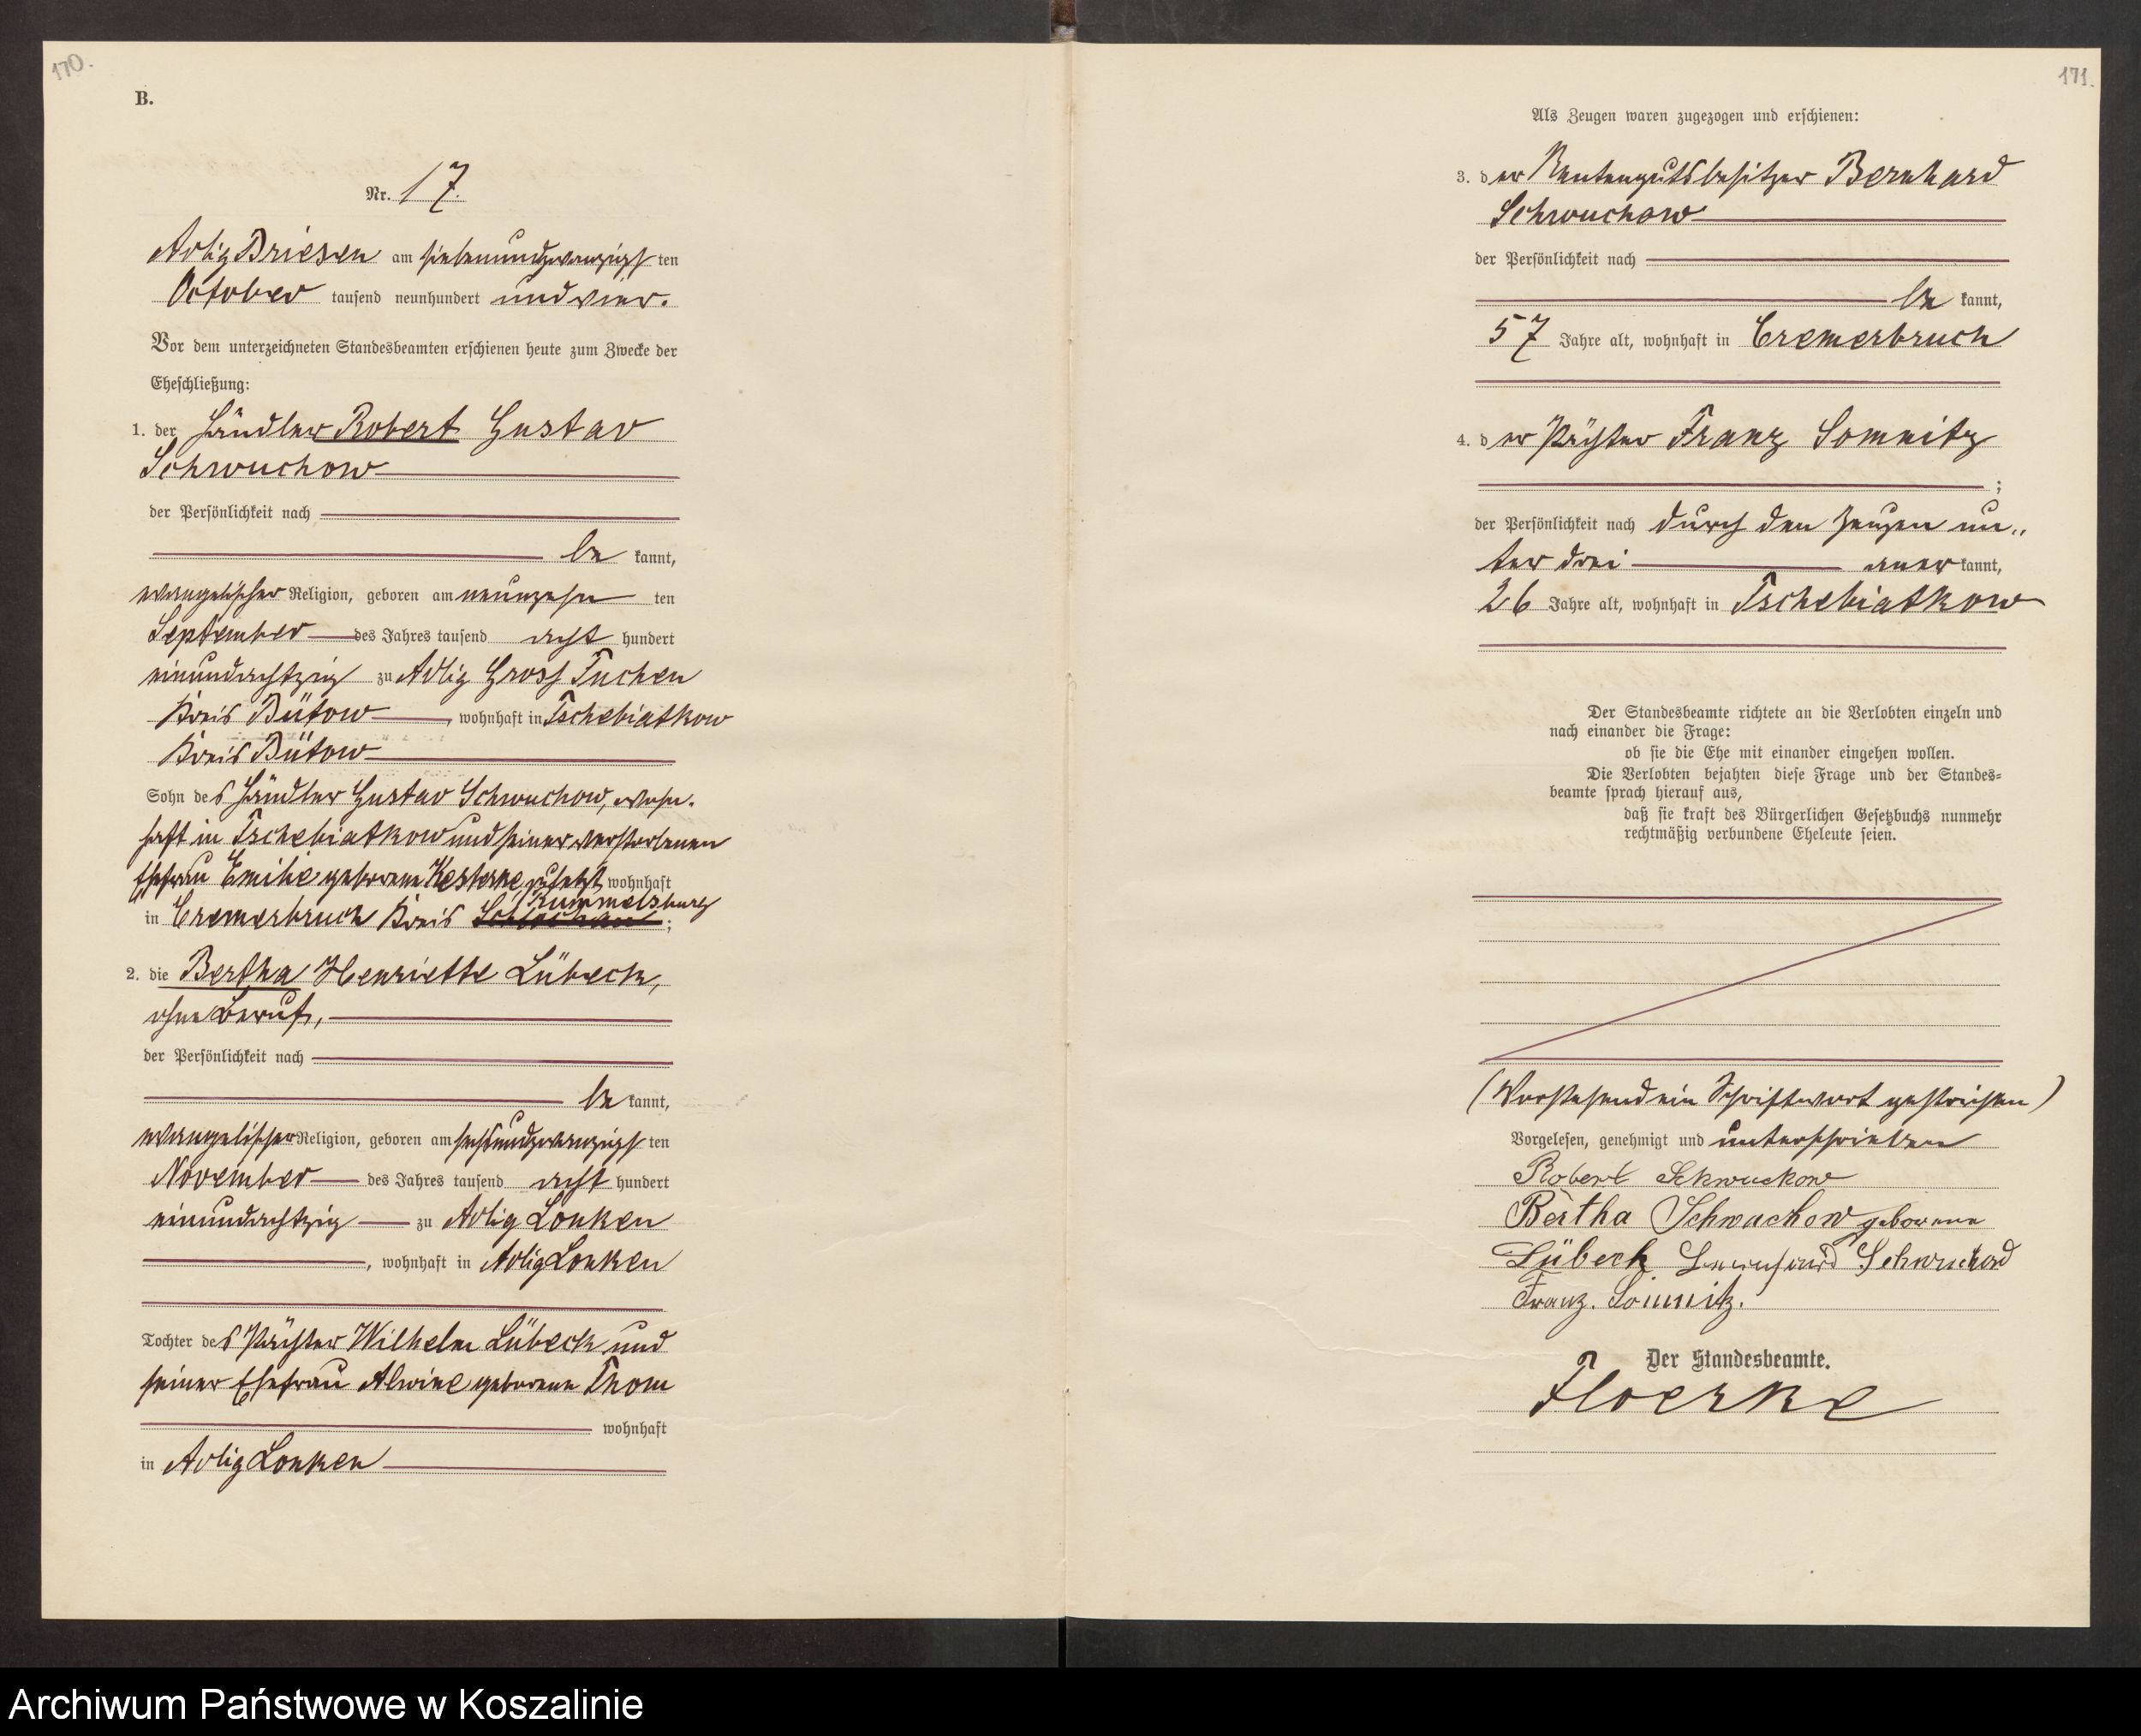 170.
B.
Nr. 17.
Adlig Briesen am siebenundzwanzigsten
October tausend neunhundert und vier.
Vor dem unterzeichneten Standesbeamten erschienen heute zum Zwecke der
Eheschließung:
1. der Händler Robert Gustav
Schwuchow
der Persönlichkeit nach
be kannt,
evangelischer Religion, geboren am neunzehn ten
September des Jahres tausend acht hundert
einundachtzig zu Adlig Gross Tuchen
Kreis Bütow, wohnhaft in Tschebiatkow
Kreis Bütow
Sohn des Händler Gustav Schwuchow, wohn-
haft in Tschebiatkow und seiner verstorbenen
Ehefrau Emilie geborene Kesterke, zuletzt wohnhaft
Rummelsburg
in Cremerbruch Kreis Schlochau;
2. die Bertha Henriette Lübeck,
ohne Beruf,
der Persönlichkeit nach
be kannt,
evangelischer Religion, geboren am sechsundzwanzigsten
November des Jahres tausend acht hundert
einundachtzig zu Adlig Lonken
, wohnhaft in Adlig Lonken
Tochter des Pächter Wilhelm Lübeck und
seiner Ehefrau Alwine geborene Thom
wohnhaft
in Adlig Lonken
171.
Als Zeugen waren zugezogen und erschienen:
3. der Rentengutsbesitzer Bernhard
Schwuchow
der Persönlichkeit nach
be kannt,
57 Jahre alt, wohnhaft in Cremerbruch
4. der Pächter Franz Somnitz
;
der Persönlichkeit nach durch den Zeugen un-
ter drei aner kannt,
26 Jahre alt, wohnhaft in Tschebiatkow
Der Standesbeamte richtete an die Verlobten einzeln und
nach einander die Frage:
ob sie die Ehe mit einander eingehen wollen.
Die Verlobten bejahten diese Frage und der Standes-
beamte sprach hierauf aus,
daß sie kraft des Bürgerlichen Gesetzbuchs nunmehr
rechtmäßig verbundene Eheleute seien.
(Vorstehend ein Schriftwort gestrichen)
Vorgelesen, genehmigt und unterschrieben
Robert Schwuchow
Bertha Schwuchow geborene
Lübeck Bernhard Schwuchow
Franz. Somnitz.
Der Standesbeamte.
Floerke
Archiwum Państwowe w Koszalinie